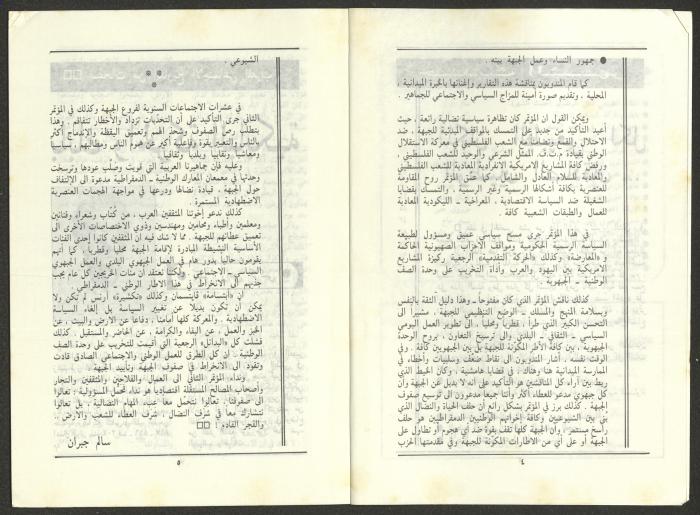 ● جمهور النساء وعمل الجبهة بينه .
كما قام المندوبون بمناقشة هذه التقارير وإغنائها بالخبرة الميدانية ،
المحلية ، وتقديم صورة أمينة للمزاج السياسي والاجتماعي للجماهير .
ويمكن القول ان المؤتمر كان تظاهرة سياسية نضالية رائعة ، حيث
أعيد التأكيد من جديد على التمسك بالمواقف المبدئية للجبهة ، ضد
الاحتلال والقمع وتضامنا مع الشعب الفلسطيني في معركة الاستقلال
الوطني بقيادة م.ت.ف. الممثل الشرعي والوحيد للشعب الفلسطيني
ورفض كافة المشاريع الامريكية الانفرادية المعادية للشعب الفلسطيني
والمعادية للسلام العادل والشامل . كما عمّق المؤتمر روح المقاومة
للعنصرية بكافة أشكالها الرسمية وغير الرسمية ، والتمسك بقضايا
الشغيلة ضد السياسة الاقتصادية ، المعراخية - الليكودية المعادية
للعمال والطبقات الشعبية كافة .
في هذا المؤتمر جرى مسح سياسي عميق ومسؤول لطبيعة
السياسة الرسمية الحكومية ومواقف الاحزاب الصهيونية الحاكمة
و «المعارضة» وكذلك «الحركة التقدمية» الرجعية ركيزة المشاريع
الامريكية بين اليهود والعرب وأداة التخريب على وحدة الصف
الوطنية - الجبهوية .
كذلك ناقش المؤتمر الذي كان مفتوحاً - وهذا دليل الثقة بالنفس
وبسلامة النهج والمسلك - الوضع التنظيمي للجبهة ، مشيرا الى
التحسن الكبير الذي طرأ ، قطريا ومحليا ، الى تطوير العمل اليومي
السياسي - الثقافي - البلدي والى ترسيخ التعاون ، بروح الوحدة
الجبهوية ، بين كافة الأطر المكوّنة للجبهة بل بين الجبهويين كافة . وفي
الوقت نفسه ، أشار المندوبون الى نقاط ضعف وسلبيات وأخطاء في
الممارسة الميدانية هنا وهناك ، في قضايا هامشية ، وكان الخيط الذي
ربط بين آراء كل المناقشين هو التأكيد على أنه لا بديل عن الجبهة وأن
كل جبهوي مدعو للعطاء أكثر وأننا جميعا مدعوون الى توسيع صفوف
الجبهة . كذلك برز في المؤتمر بشكل رائع أن حلف الحياة والنضال الذي
بنى بين الشيوعيين وكافة إخوانهم الوطنيين الديمقراطيين هو حلف
راسخ مستمر ، وان الجبهة كلها تقف بقوة ضد أي هجوم أو تطاول على
الجبهة أو على أي من الاطارات المكوّنة للجبهة وفي مقدمتها الحزب
٤
الشيوعي .
* * *
في عشرات الاجتماعات السنوية لفروع الجبهة وكذلك في المؤتمر
الثاني جرى التأكيد على أن التحديات تزداد والأخطار تتفاقم . وهذا
يتطلب رص الصفوف وشحذ الهمم وتعميق اليقظة والاندماج أكثر
بالناس والتعبير بقوة وفاعلية أكبر عن هموم الناس ومطالبهم ، سياسيا
ومعاشيا ونقابيا وبلديا وثقافيا .
وعليه فإن جماهيرنا العربية التي قويت وصلب عودها وترسخت
وحدتها في معمعان المعارك الوطنية - الديمقراطية مدعوة الى الالتفاف
حول الجبهة ، قيادة نضالها ودرعها في مواجهة الهجمات العنصرية
الاضطهادية المستمرة .
كذلك ندعو إخوتنا المثقفين العرب ، من كتاب وشعراء وفنانين
ومعلمين وأطباء ومحامين ومهندسين وذوي الاختصاصات الأخرى الى
تعميق عطائهم للجبهة . مما لا شك فيه ان المثقفين كانوا إحدى الفئات
الأساسية النشيطة المبادرة لإقامة الجبهة محليا وقطريا ، كما أنهم
يقومون حاليا بدور هام في العمل الجبهوي البلدي والعمل الجبهوي
السياسي - الاجتماعي . ولكننا نعتقد أن مئات الخريجين كل عام يجب
جذبهم الى الانخراط في هذا الاطار الوطني - الديمقراطي .
ان «ابتسامة» فايتسمان وكذلك «تكشيرة» أرنس لم تكن ولا
يمكن أن تكون بديلا عن تغيير السياسة بل إلغاء السياسة
الاضطهادية . والمعركة كلها أمامنا ، دفاعا عن الارض والبيت ، عن
الخبز والعمل ، عن البقاء والكرامة ، عن الحاضر والمستقبل . كذلك
فشلت كل «البدائل» الرجعية التي أقيمت للتخريب على وحدة الصف
الوطنية . ان كل الطرق للعمل الوطني والاجتماعي الصادق قادت
وتقود الى الانخراط في صفوف الجبهة وتأييد الجبهة .
ونداء المؤتمر الثاني الى العمال والفلاحين والمثقفين والتجار
وأصحاب المصالح المستقلة اقتصاديا هو نداء تحمّل المسؤولية : تعالوا
الى صفوفنا . تعالوا نتحمّل معا عبء المهام النضالية ، بل تعالوا
نتشارك معا في شرف النضال ، شرف العطاء للشعب والارض ..
والفجر القادم ! □□
سالم جبران
٥